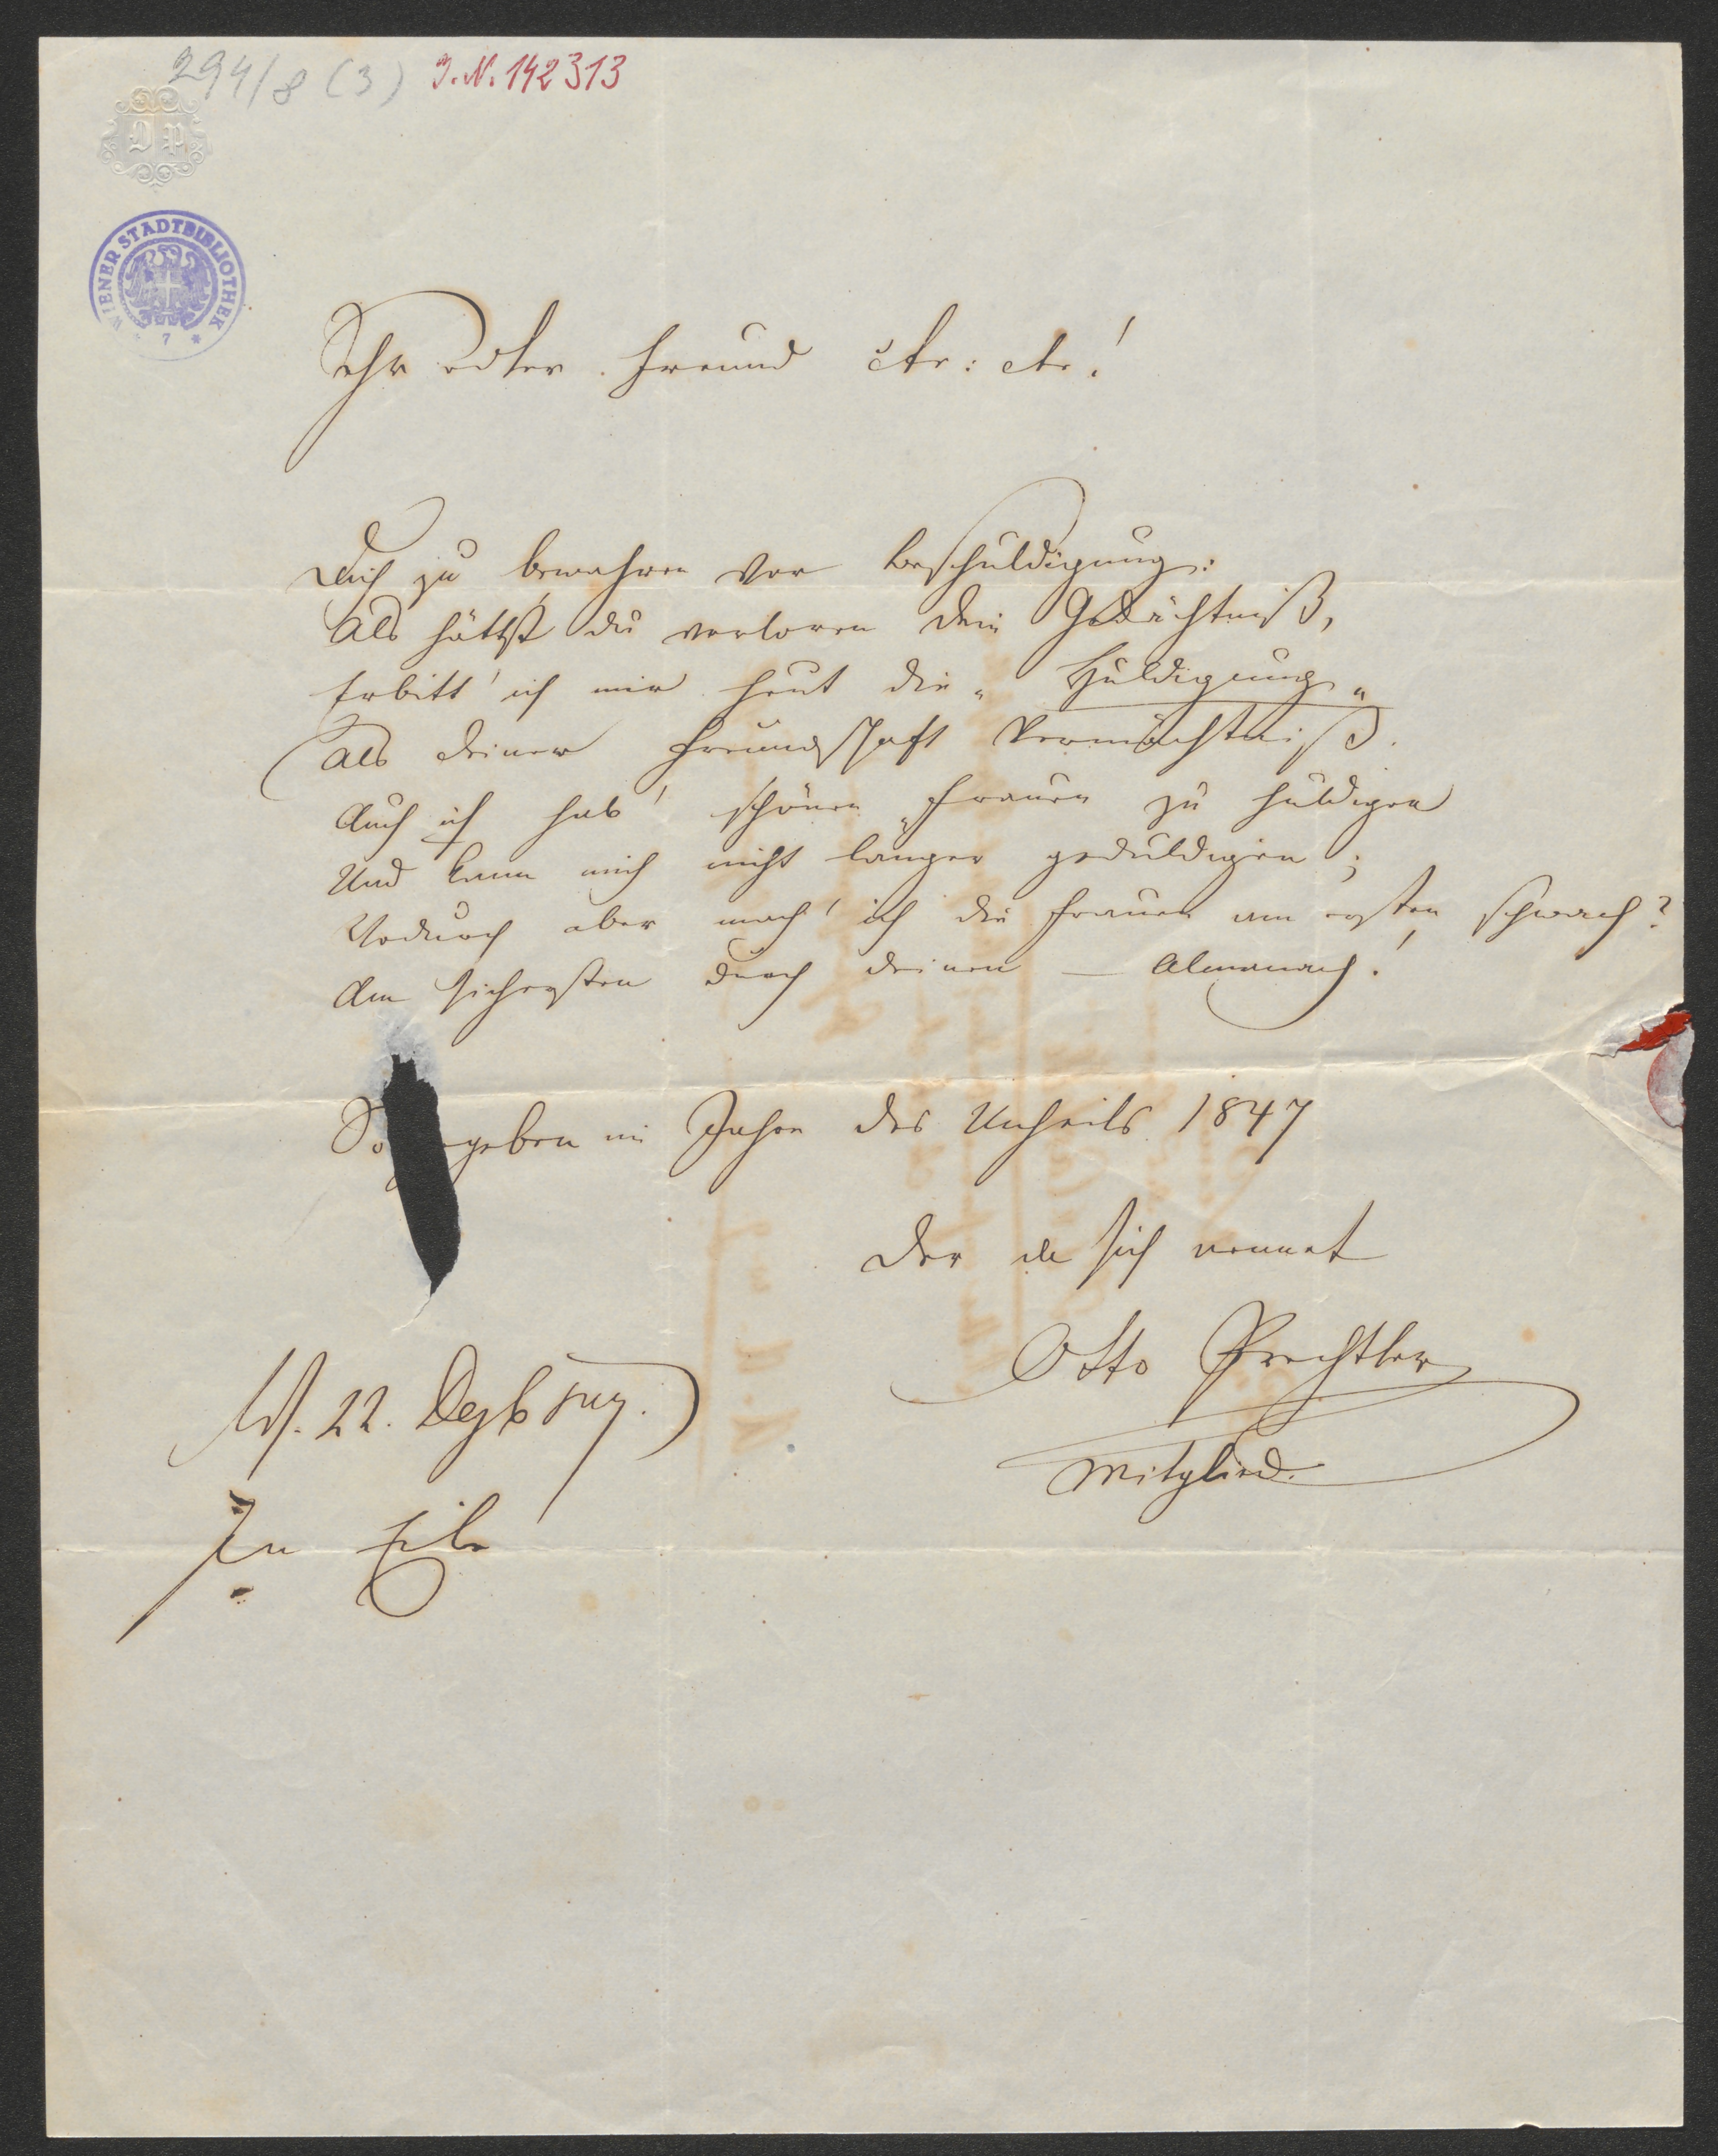 294/8 (3) J.N. 142313
DP
WIENER STADTBIBLIOTHEK
* 7 *
Sehr edler Freund etc: etc!
Dich zu bewahren vor Beschuldigung:
Als hättst du verloren dein Gedächtniß,
Erbitt' ich mir heut die „Huldigung„
Als deiner Freundschaft Vermächtniß.
Auch ich hab' schönen Frauen zu huldigen
Und kann mich nicht länger geduldigen;
Wodurch aber mach' ich die Frauen am ersten schwach?
Am sichersten durch deinen – Almanach!
So geben im Jahre des Unheils 1847
der da sich nennet
Otto Prechtler
Mitglied.
W. 22. Dezb
In Eile